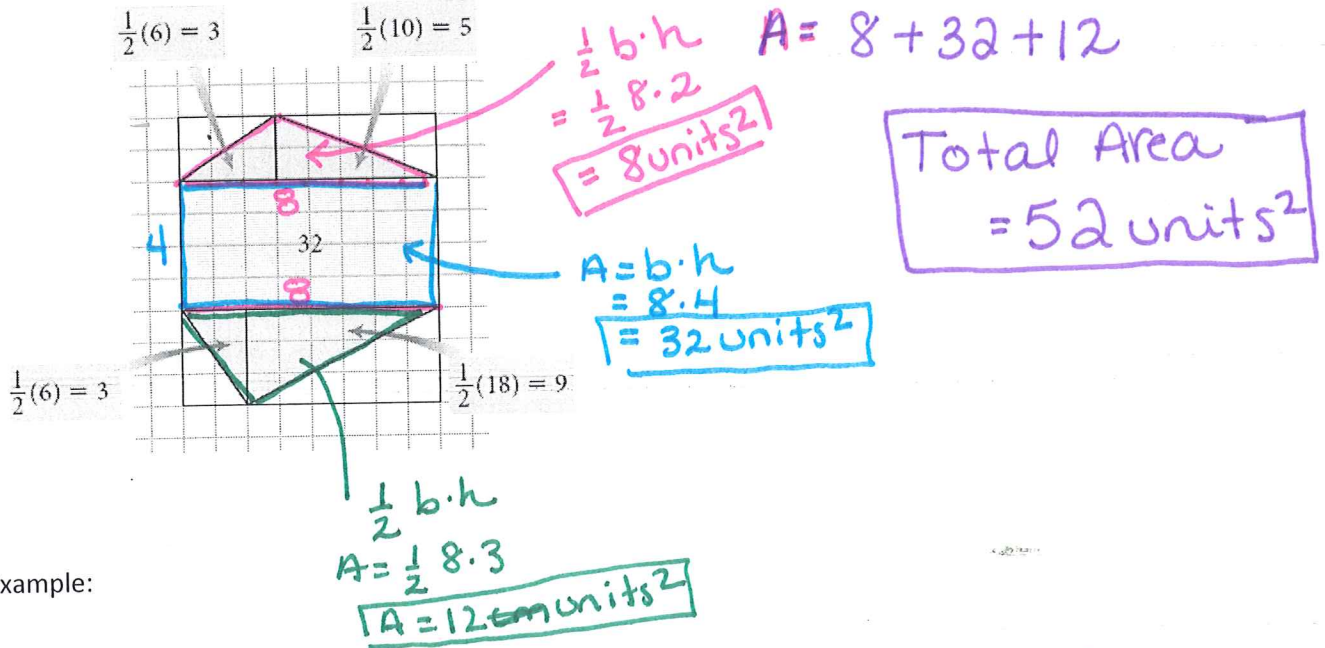 1/2(6) = 3
1/2(10) = 5
1/2 b·h
= 1/2 8·2
= 8 units²
A = 8 + 32 + 12
Total Area
= 52 units²
8
4
32
8
A = b·h
= 8·4
= 32 units²
1/2(6) = 3
1/2(18) = 9
1/2 b·h
A = 1/2 8·3
A = 12 units²
xample: